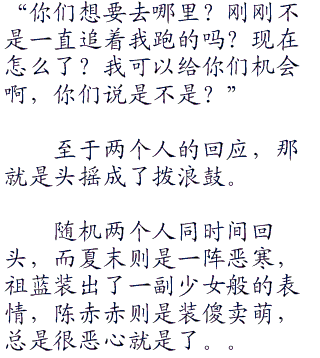 “你们想要去哪里？刚刚不
是一直追着我跑的吗？现在
怎么了？我可以给你们机会
啊，你们说是不是？”
至于两个人的回应，那
就是头摇成了拨浪鼓。
随机两个人同时间回
头，而夏末则是一阵恶寒，
祖蓝装出了一副少女般的表
情，陈赤赤则是装傻卖萌，
总是很恶心就是了。。